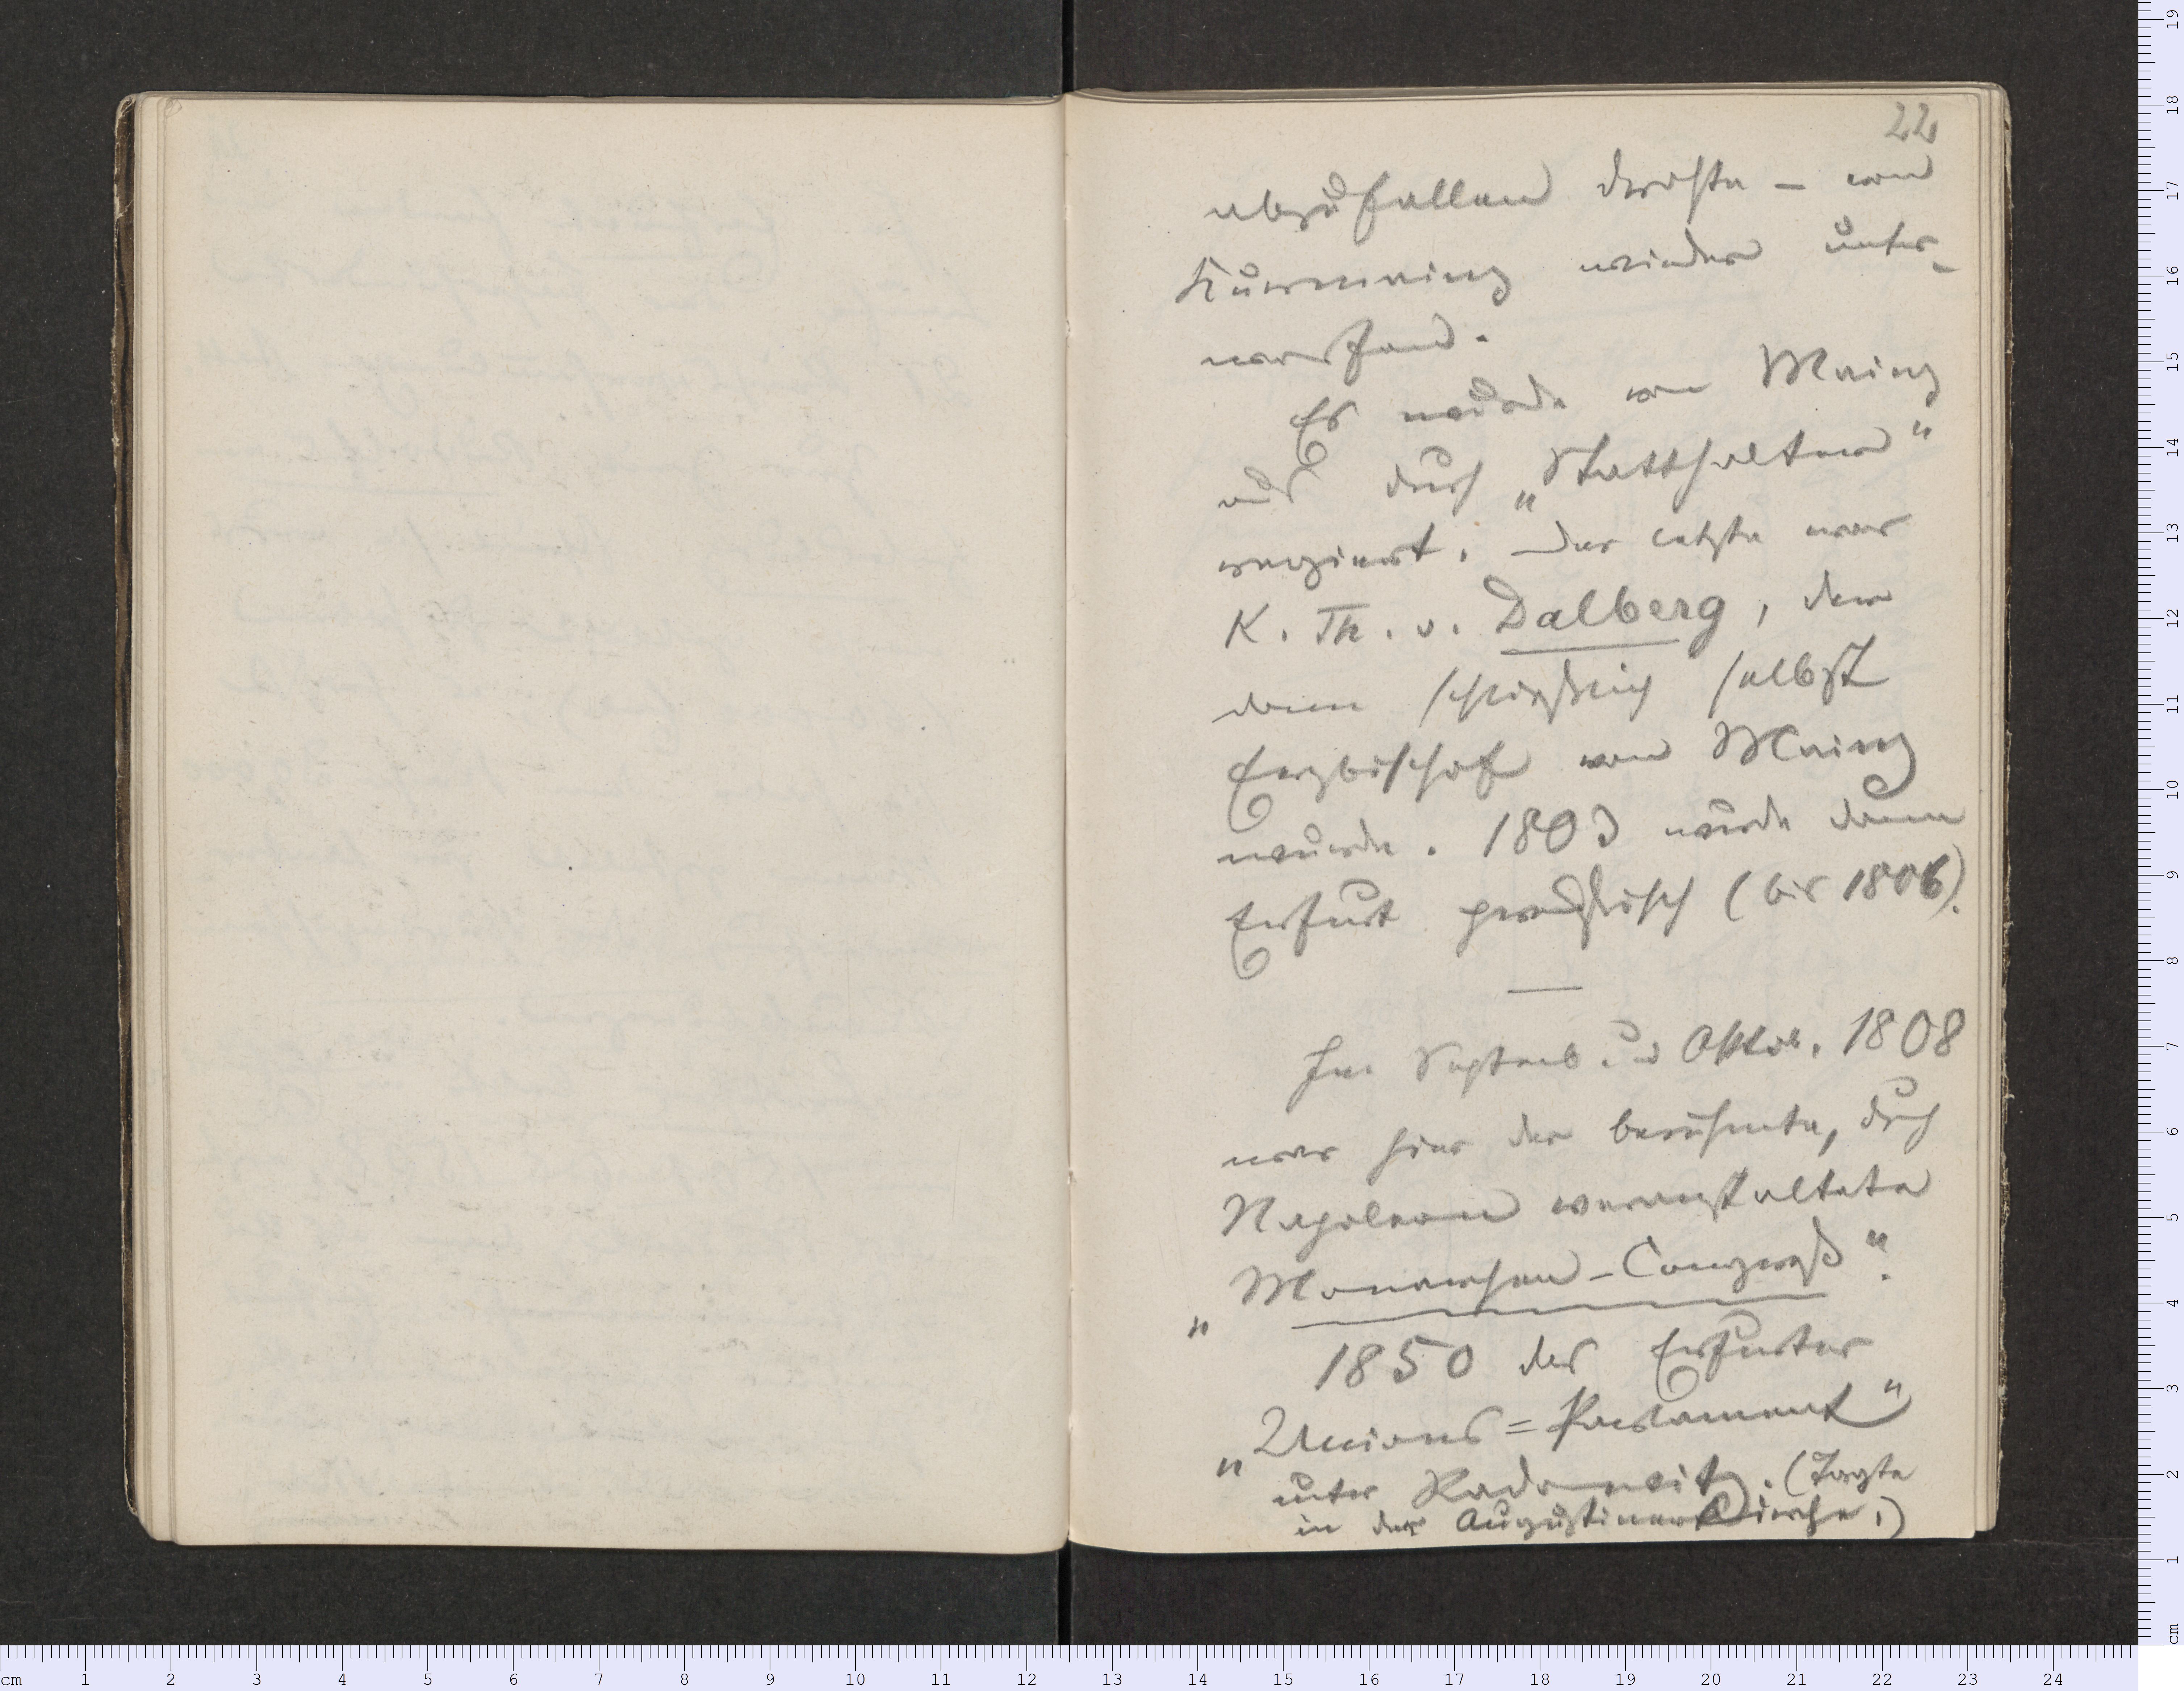 22
abzufallen drohte – von
Kurmainz wieder unter-
worfen.
Es wurde von Mainz
aus durch „Statthalter“
regiert. Der letzte war
K. Th. v. Dalberg, der
dann schließlich selbst
Erzbischof von Mainz
wurde. 1803 wurde dann
Erfurt preußisch (bis 1806).
Im Septemb. u Oktob. 1808
war hier der berühmte, durch
Napoleon veranstaltete
„Monarchen-Congreß“.
1850 das Erfurter
„Unions=Parlament“
unter Radowitz. (Tagte
in der Augustinerkirche.)